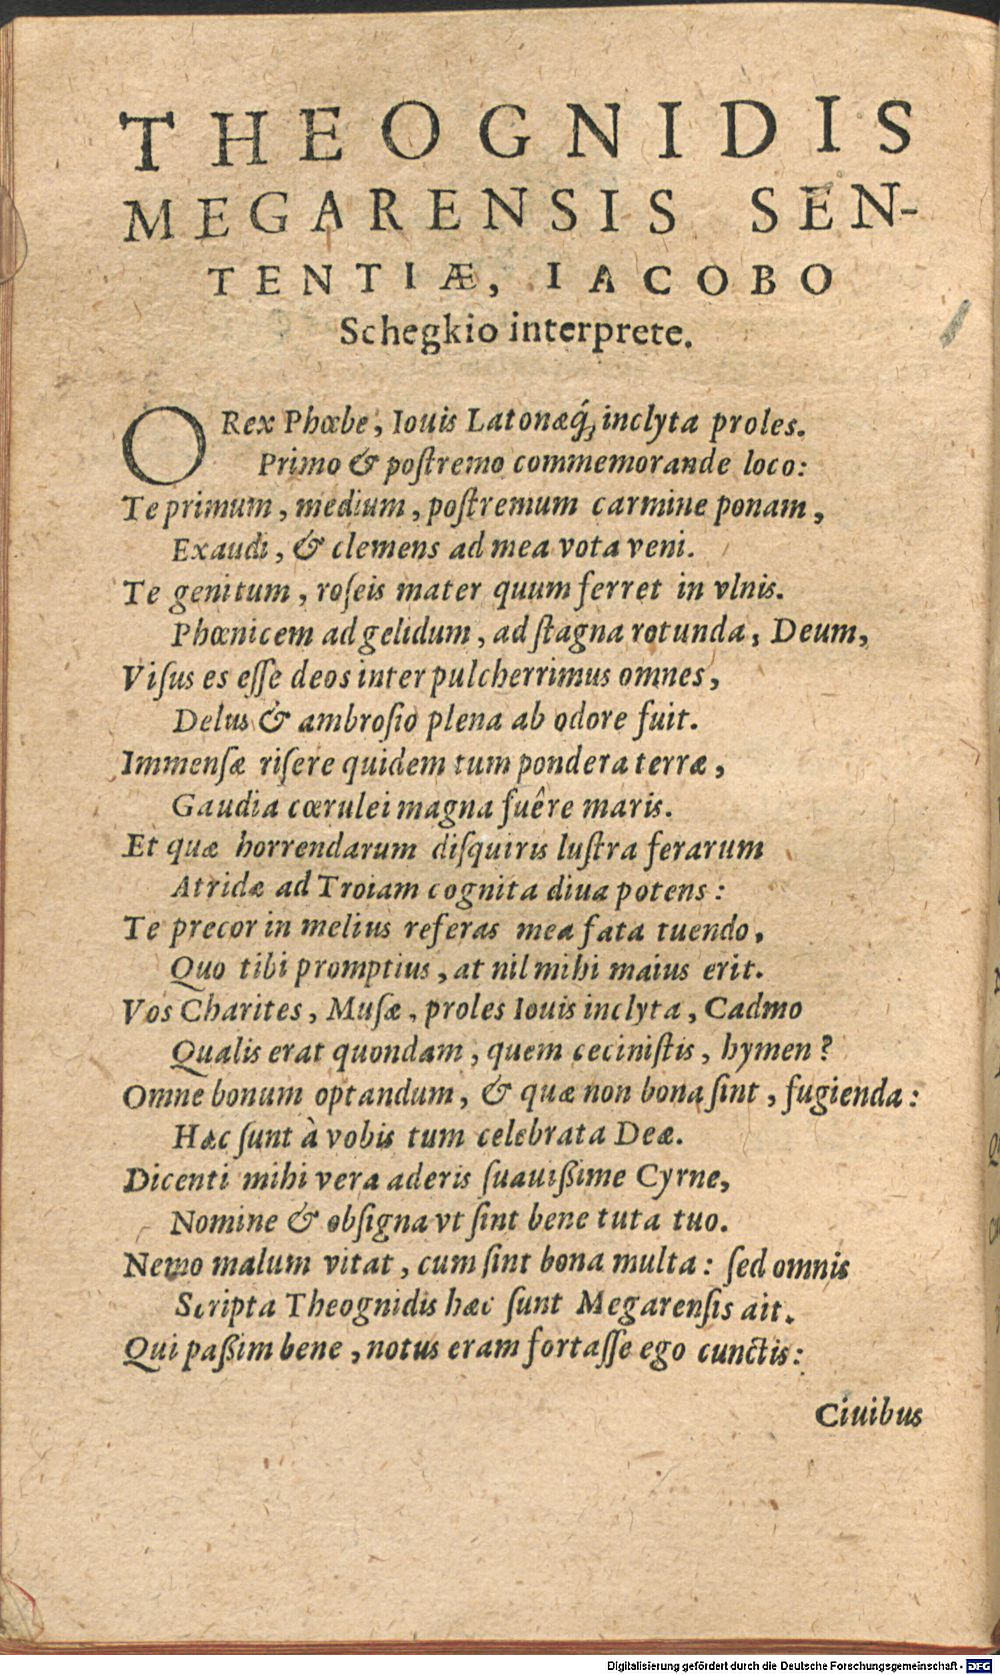 THEOGNIDIS
MEGARENSIS SEN-
TENTIÆ, IACOBO
Schegkio interprete.
O Rex Phœbe, Iouis Latonæq́; inclyta proles.
Primo & poſtremo commemorande loco:
Te primum, medium, poſtremum carmine ponam,
Exaudi, & clemens ad mea vota veni.
Te genitum, roſeis mater quum ferret in vlnis.
Phœnicem ad gelidum, ad ſtagna rotunda, Deum,
Viſus es eſſe deos inter pulcherrimus omnes,
Delus & ambroſio plena ab odore fuit.
Immenſæ riſere quidem tum pondera terræ,
Gaudia cœrulei magna fuêre maris.
Et quæ horrendarum diſquiris luſtra ferarum
Atridæ ad Troiam cognita diua potens:
Te precor in melius referas mea fata tuendo,
Quo tibi promptius, at nil mihi maius erit.
Vos Charites, Muſæ, proles Iouis inclyta, Cadmo
Qualis erat quondam, quem ceciniſtis, hymen?
Omne bonum optandum, & quæ non bona ſint, fugienda:
Hæc ſunt à vobis tum celebrata Deæ.
Dicenti mihi vera aderis ſuauißime Cyrne,
Nomine & obſigna vt ſint bene tuta tuo.
Nemo malum vitat, cum ſint bona multa: ſed omnis
Scripta Theognidis hæc ſunt Megarenſis ait.
Qui paßim bene, notus eram fortaſſe ego cunctis:
Ciuibus
Digitalisierung gefördert durch die Deutsche Forschungsgemeinschaft - DFG